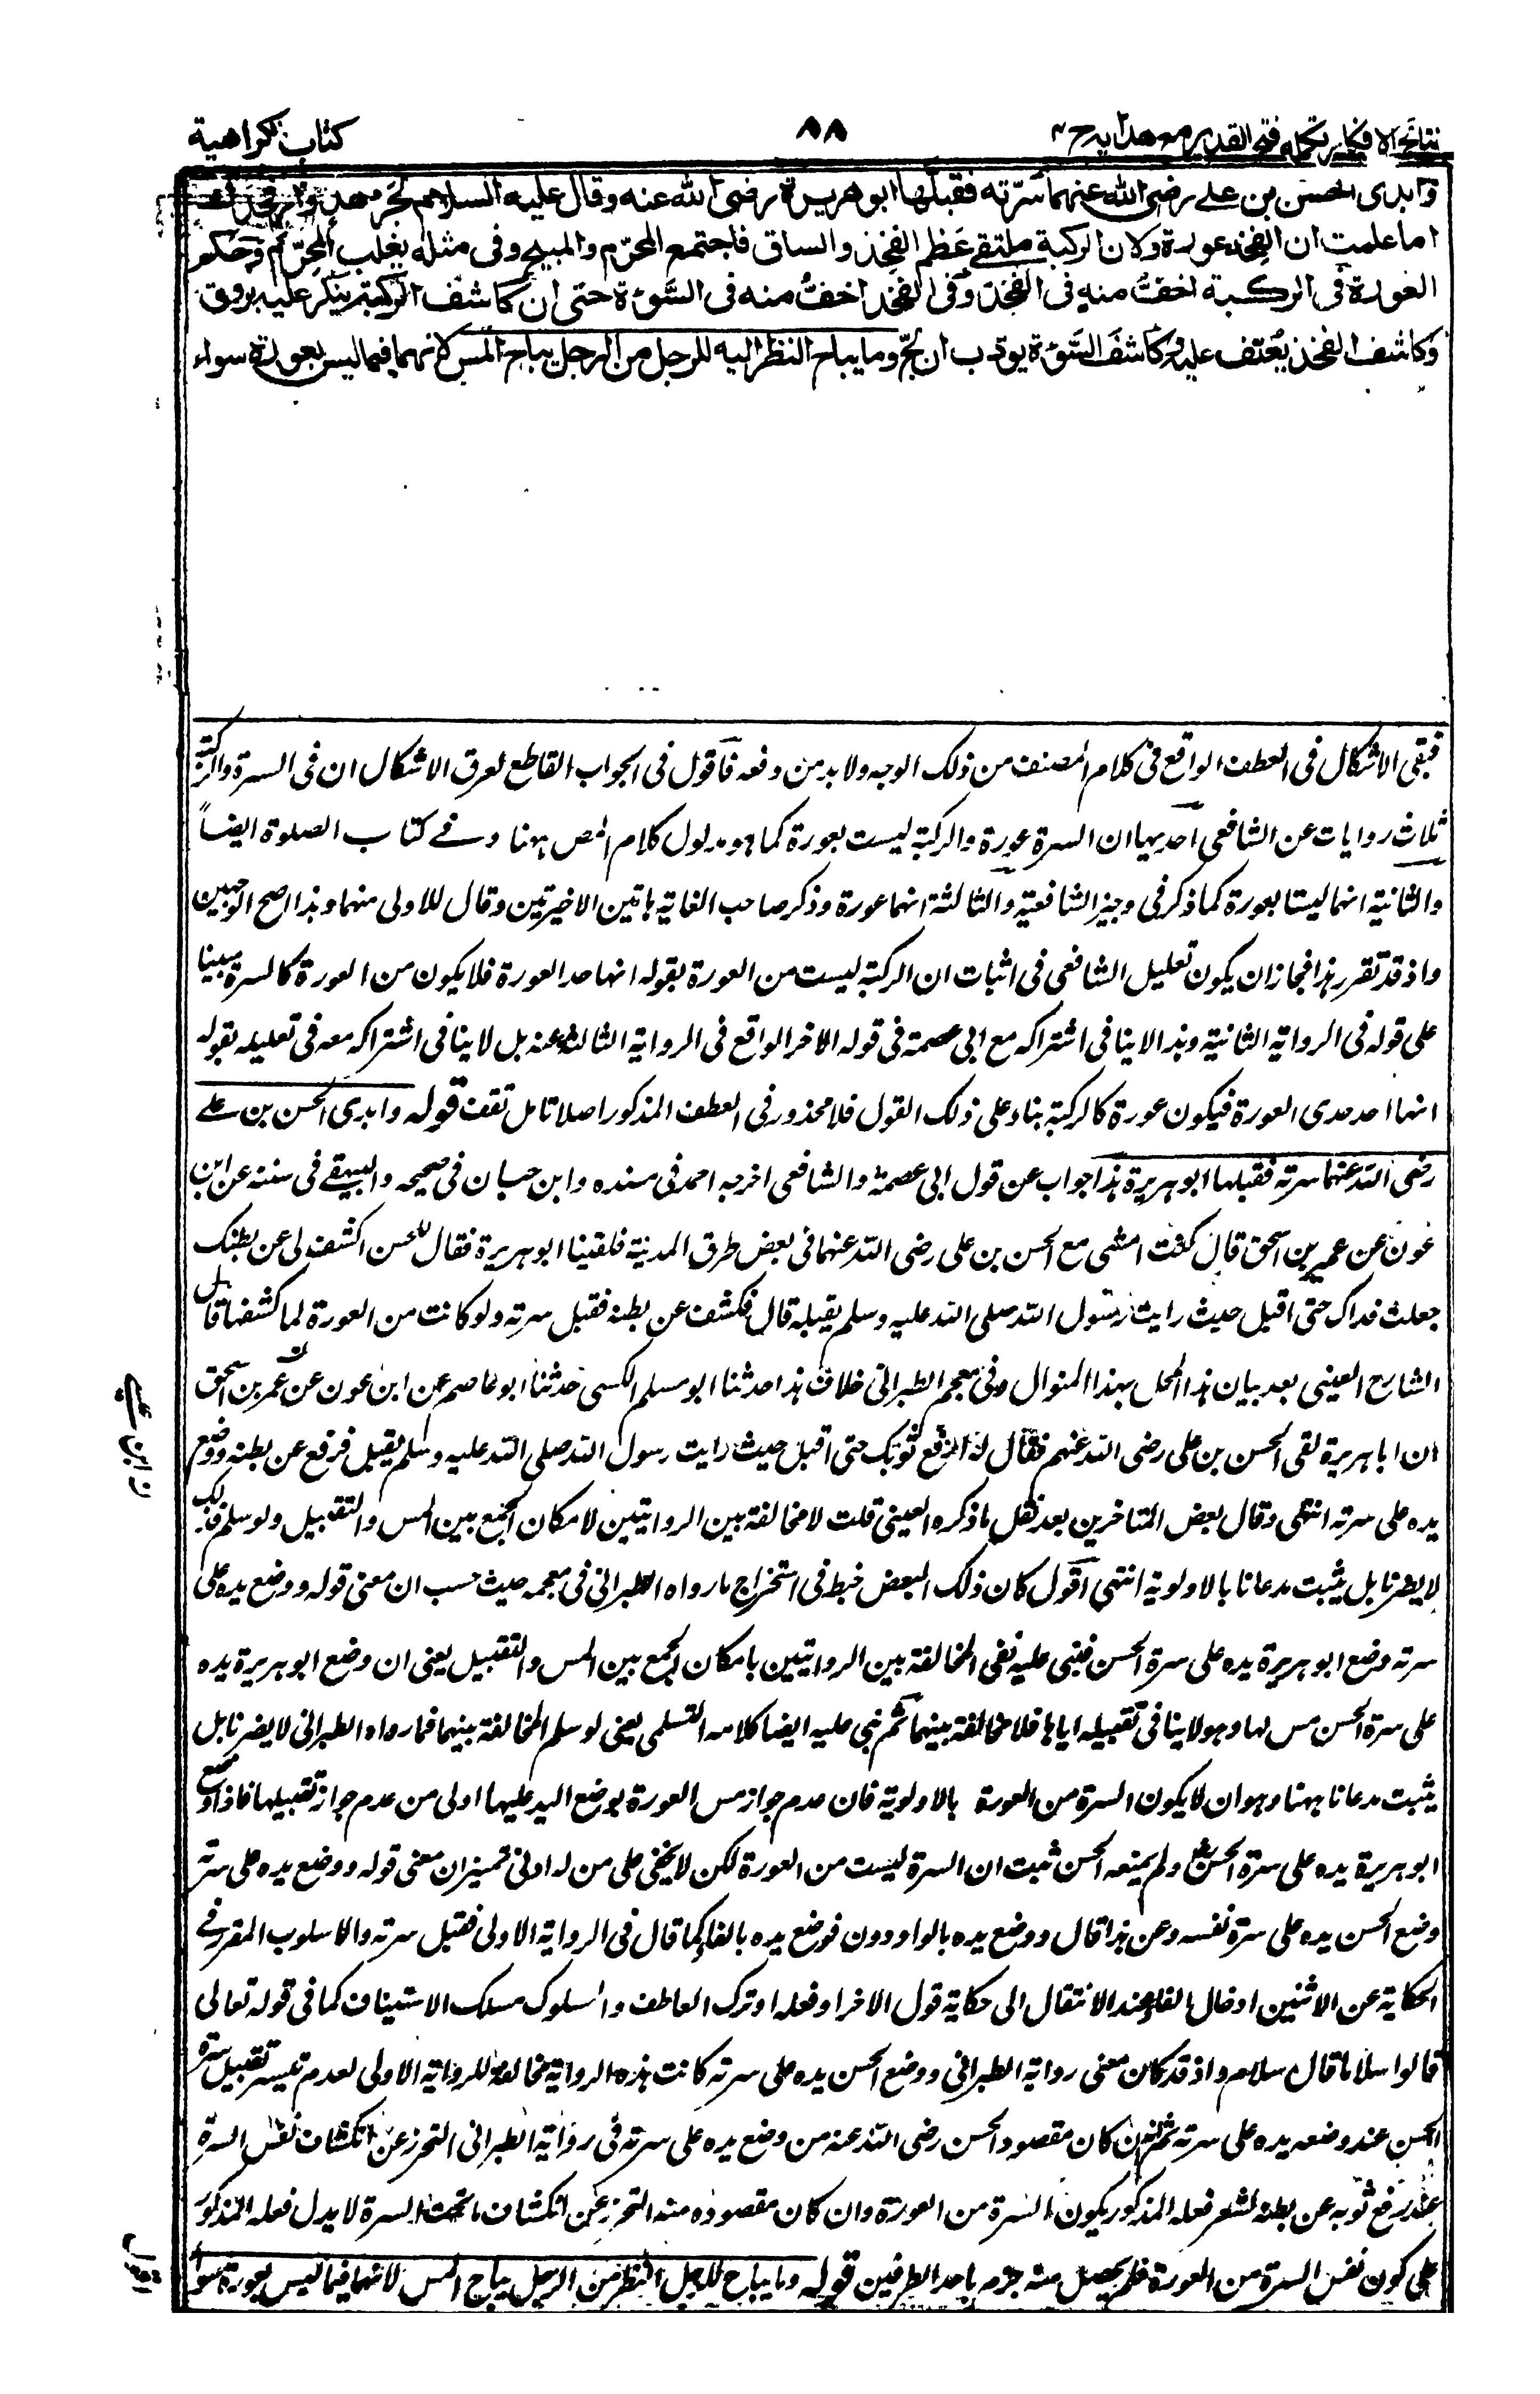 نتائج الافكار تكمله فتح القدير مع هدايه ج ٤
٨٨
كتاب الكراهية
وابدى الحسن بن على رضى الله عنهما سرّته فقبلها ابو هريرة رضى الله عنه وقال عليه السلام لجرهد وار فخذك
اما علمت ان الفخذ عورة ولان الركبة ملتقى عظم الفخذ والساق فاجتمع المحرّم والمبيح وفى مثله يغلب المحرّم وحكم
العورة فى الركبة اخف منه فى الفخذ وفى الفخذ اخفّ منه فى السَّوءة حتى ان كاشف الركبة ينكر عليه برفق
وكاشف الفخذ يعنف عليه وكاشف السَّوءة يودّب ان لجّ وما يباح النظر اليه للرجل من الرجل يباح المس لانهما فيما ليس بعورة سواء
فبقى الاشكال فى العطف الواقع فى كلام المصنف من ذلك الوجه ولا بد من دفعه فاقول فى الجواب القاطع لعرق الاشكال ان فى السرة والركبة
ثلاث روايات عن الشافعى احديها ان السرة عورة والركبة ليست بعورة كما هو مدلول كلام المص ههنا وفى كتاب الصلوة ايضاً
والثانية انهما ليستا بعورة كما ذكر فى وجيز الشافعية والثالثة انهما عورة وذكر صاحب الغاية هاتين الاخيرتين وقال للاولى منهما وهذا اصح الوجهين
واذ قد تقرر هذا فجاز ان يكون تعليل الشافعى فى اثبات ان الركبة ليست من العورة بقوله انها حد العورة فلا يكون من العورة كالسرة مبينا
على قوله فى الرواية الثانية وهذا لا ينافى اشتراكه مع ابى عصمة فى قوله الاخر الواقع فى الرواية الثالثة عنه بل لا ينافى اشتراكه معه فى تعليله بقوله
انها احد حدى العورة فيكون عورة كالركبة بناء على ذلك القول فلا محذور فى العطف المذكور اصلا تامل تقف قوله وابدى الحسن بن على
رضى الله عنهما سرته فقبلها ابو هريرة هذا جواب عن قول ابى عصمة والشافعى اخرجه احمد فى مسنده وابن حبان فى صحيحه والبيهقى فى سننه عن ابن
عون عن عمير بن اسحق قال كنت امشى مع الحسن بن على رضى الله عنهما فى بعض طرق المدينة فلقينا ابو هريرة فقال للحسن اكشف لى عن بطنك
جعلت فداك حتى اقبل حيث رايت رسول الله صلى الله عليه وسلم يقبله قال فكشف عن بطنه فقبل سرته ولو كانت من العورة لما كشفها قال
الشارح العينى بعد بيان هذا المحل بهذا المنوال وفى معجم الطبرانى خلاف هذا حدثنا ابو مسلم الكسى حدثنا ابو عاصم عن ابن عون عن عمر بن اسحق
ان ابا هريرة لقى الحسن بن على رضى الله عنهم فقال له ارفع ثوبك حتى اقبل حيث رايت رسول الله صلى الله عليه وسلم يقبل فرفع عن بطنه ووضع
يده على سرته انتهى وقال بعض المتاخرين بعد نقل ما ذكره العينى قلت لا مخالفة بين الروايتين لامكان الجمع بين المس والتقبيل ولو سلم فذلك
لا يضرنا بل يثبت مدعانا بالاولوية انتهى اقول كان ذلك البعض خبط فى استخراج ما رواه الطبرانى فى معجمه حيث حسب ان معنى قوله ووضع يده على
سرته وضع ابو هريرة يده على سرة الحسن فبنى عليه نفى المخالفة بين الروايتين بامكان الجمع بين المس والتقبيل يعنى ان وضع ابو هريرة يده
على سرة الحسن مس لها وهو لا ينافى تقبيله اياها فلا مخالفة بينهما ثم بنى عليه ايضا كلامه التسلمى يعنى لو سلم المخالفة بينهما فما رواه الطبرانى لا يضرنا بل
يثبت مدعانا ههنا وهو ان لا يكون السرة من العورة بالاولوية فان عدم جواز مس العورة بوضع اليد عليها اولى من عدم جواز تقبيلها فاذا وضع
ابو هريرة يده على سترة الحسن ولم يمنعه الحسن ثبت ان السرة ليست من العورة لكن لا يخفى على من له ادنى تمييز ان معنى قوله ووضع يده على سرته
وضع الحسن يده على سرة نفسه وعن هذا قال ووضع يده بالواو دون فوضع يده بالفاء كما قال فى الرواية الاولى فقبل سرته والاسلوب المقرر فى
الحكاية عن الاثنين ادخال الفاء عند الانتقال الى حكاية قول الاخر او فعله او ترك العاطف والسلوك مسلك الاستيناف كما فى قوله تعالى
قالوا سلاما قال سلام واذ قد كان معنى رواية الطبرانى ووضع الحسن يده على سرته كانت هذه الرواية مخالفة للرواية الاولى لعدم تيسر تقبيل سرة
الحسن عند وضعه يده على سرته ثم ان كان مقصود الحسن رضى الله عنه من وضع يده على سرته فى رواية الطبرانى التحرز عن انكشاف نفس السرة
عند رفع ثوبه عن بطنه لشعر فعله المذكور يكون السرة من العورة وان كان مقصوده منه التحرز عن انكشاف ما تحت السرة لا يدل فعله المذكور
على كون نفس السرة من العورة فلم يحصل منه جزم باحد الطرفين قوله وما يباح للرجل النظر من الرجل يباح المس لانهما فيما ليس بعورة سوا